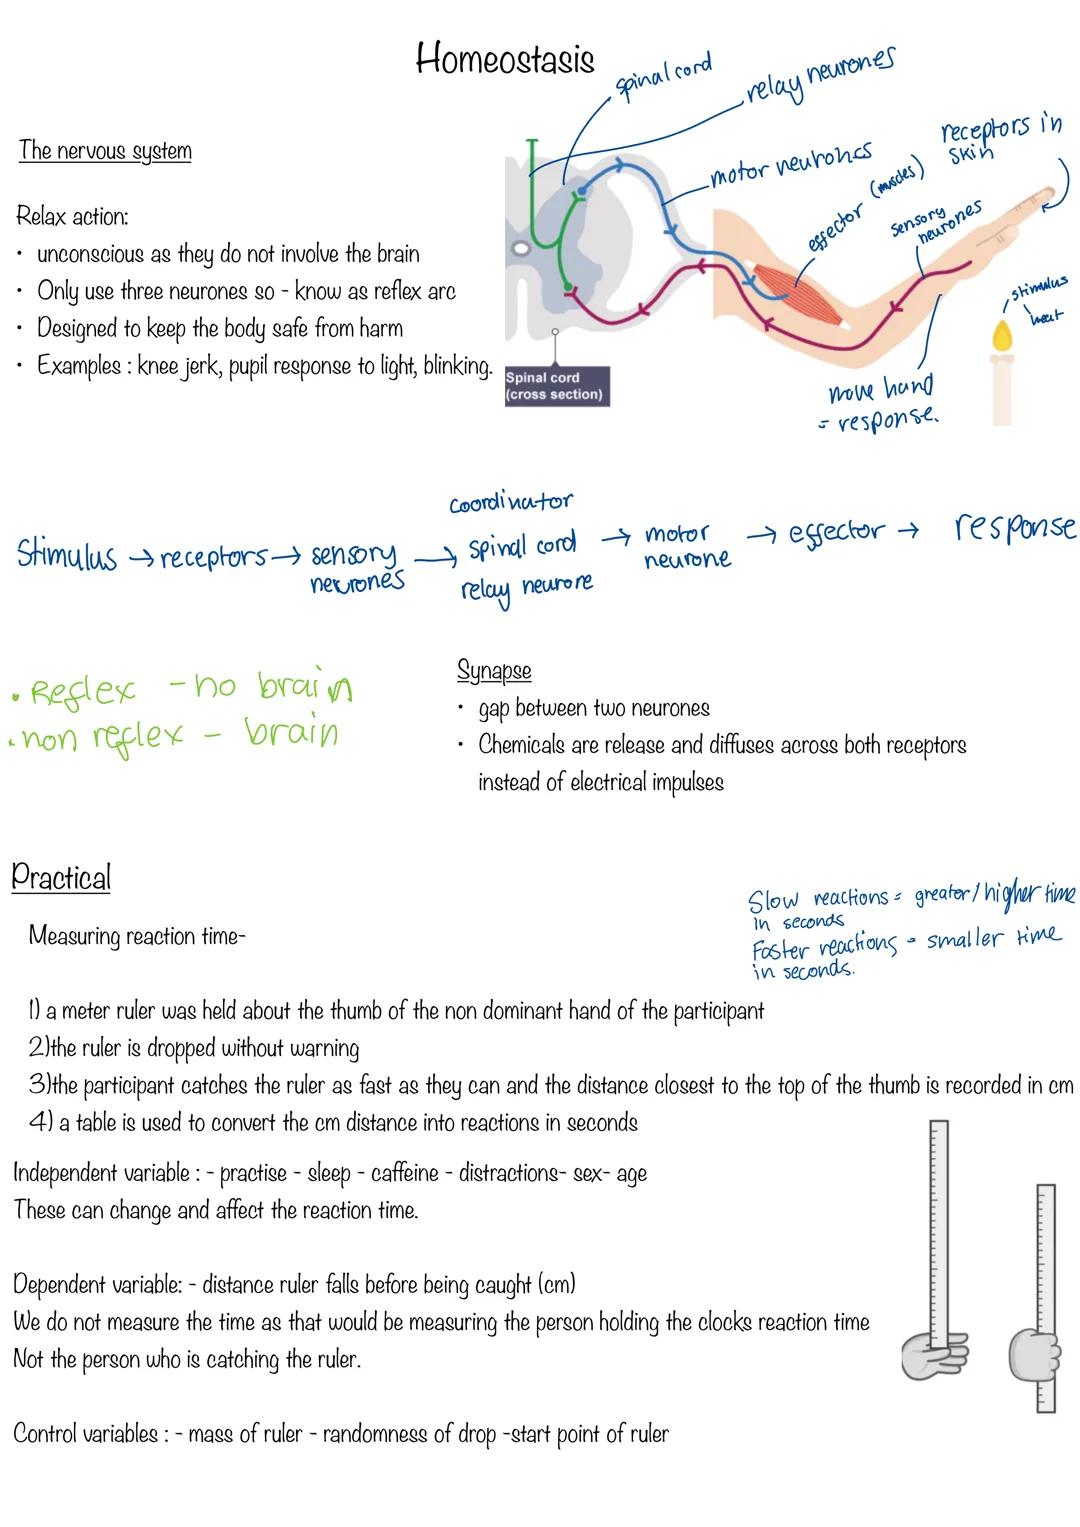 Homeostasis
spinal cord
relay neurones
The nervous system
motor neurones
effector (muscles)
receptors in
skin
sensory
neurones
stimulus
heat
Relax action:
• unconscious as they do not involve the brain
• Only use three neurones so - know as reflex arc
• Designed to keep the body safe from harm
• Examples : knee jerk, pupil response to light, blinking.
Spinal cord
(cross section)
move hand
= response.
coordinator
Stimulus → receptors → sensory → spinal cord → motor → effector → response
neurones relay neurone neurone
• Reflex - no brain
• non reflex - brain
Synapse
• gap between two neurones
• Chemicals are release and diffuses across both receptors
instead of electrical impulses
Practical
Slow reactions = greater/higher time
in seconds
Faster reactions = smaller time
in seconds.
Measuring reaction time-
1) a meter ruler was held about the thumb of the non dominant hand of the participant
2)the ruler is dropped without warning
3)the participant catches the ruler as fast as they can and the distance closest to the top of the thumb is recorded in cm
4) a table is used to convert the cm distance into reactions in seconds
Independent variable : - practise - sleep - caffeine - distractions- sex- age
These can change and affect the reaction time.
Dependent variable: - distance ruler falls before being caught (cm)
We do not measure the time as that would be measuring the person holding the clocks reaction time
Not the person who is catching the ruler.
Control variables : - mass of ruler - randomness of drop -start point of ruler